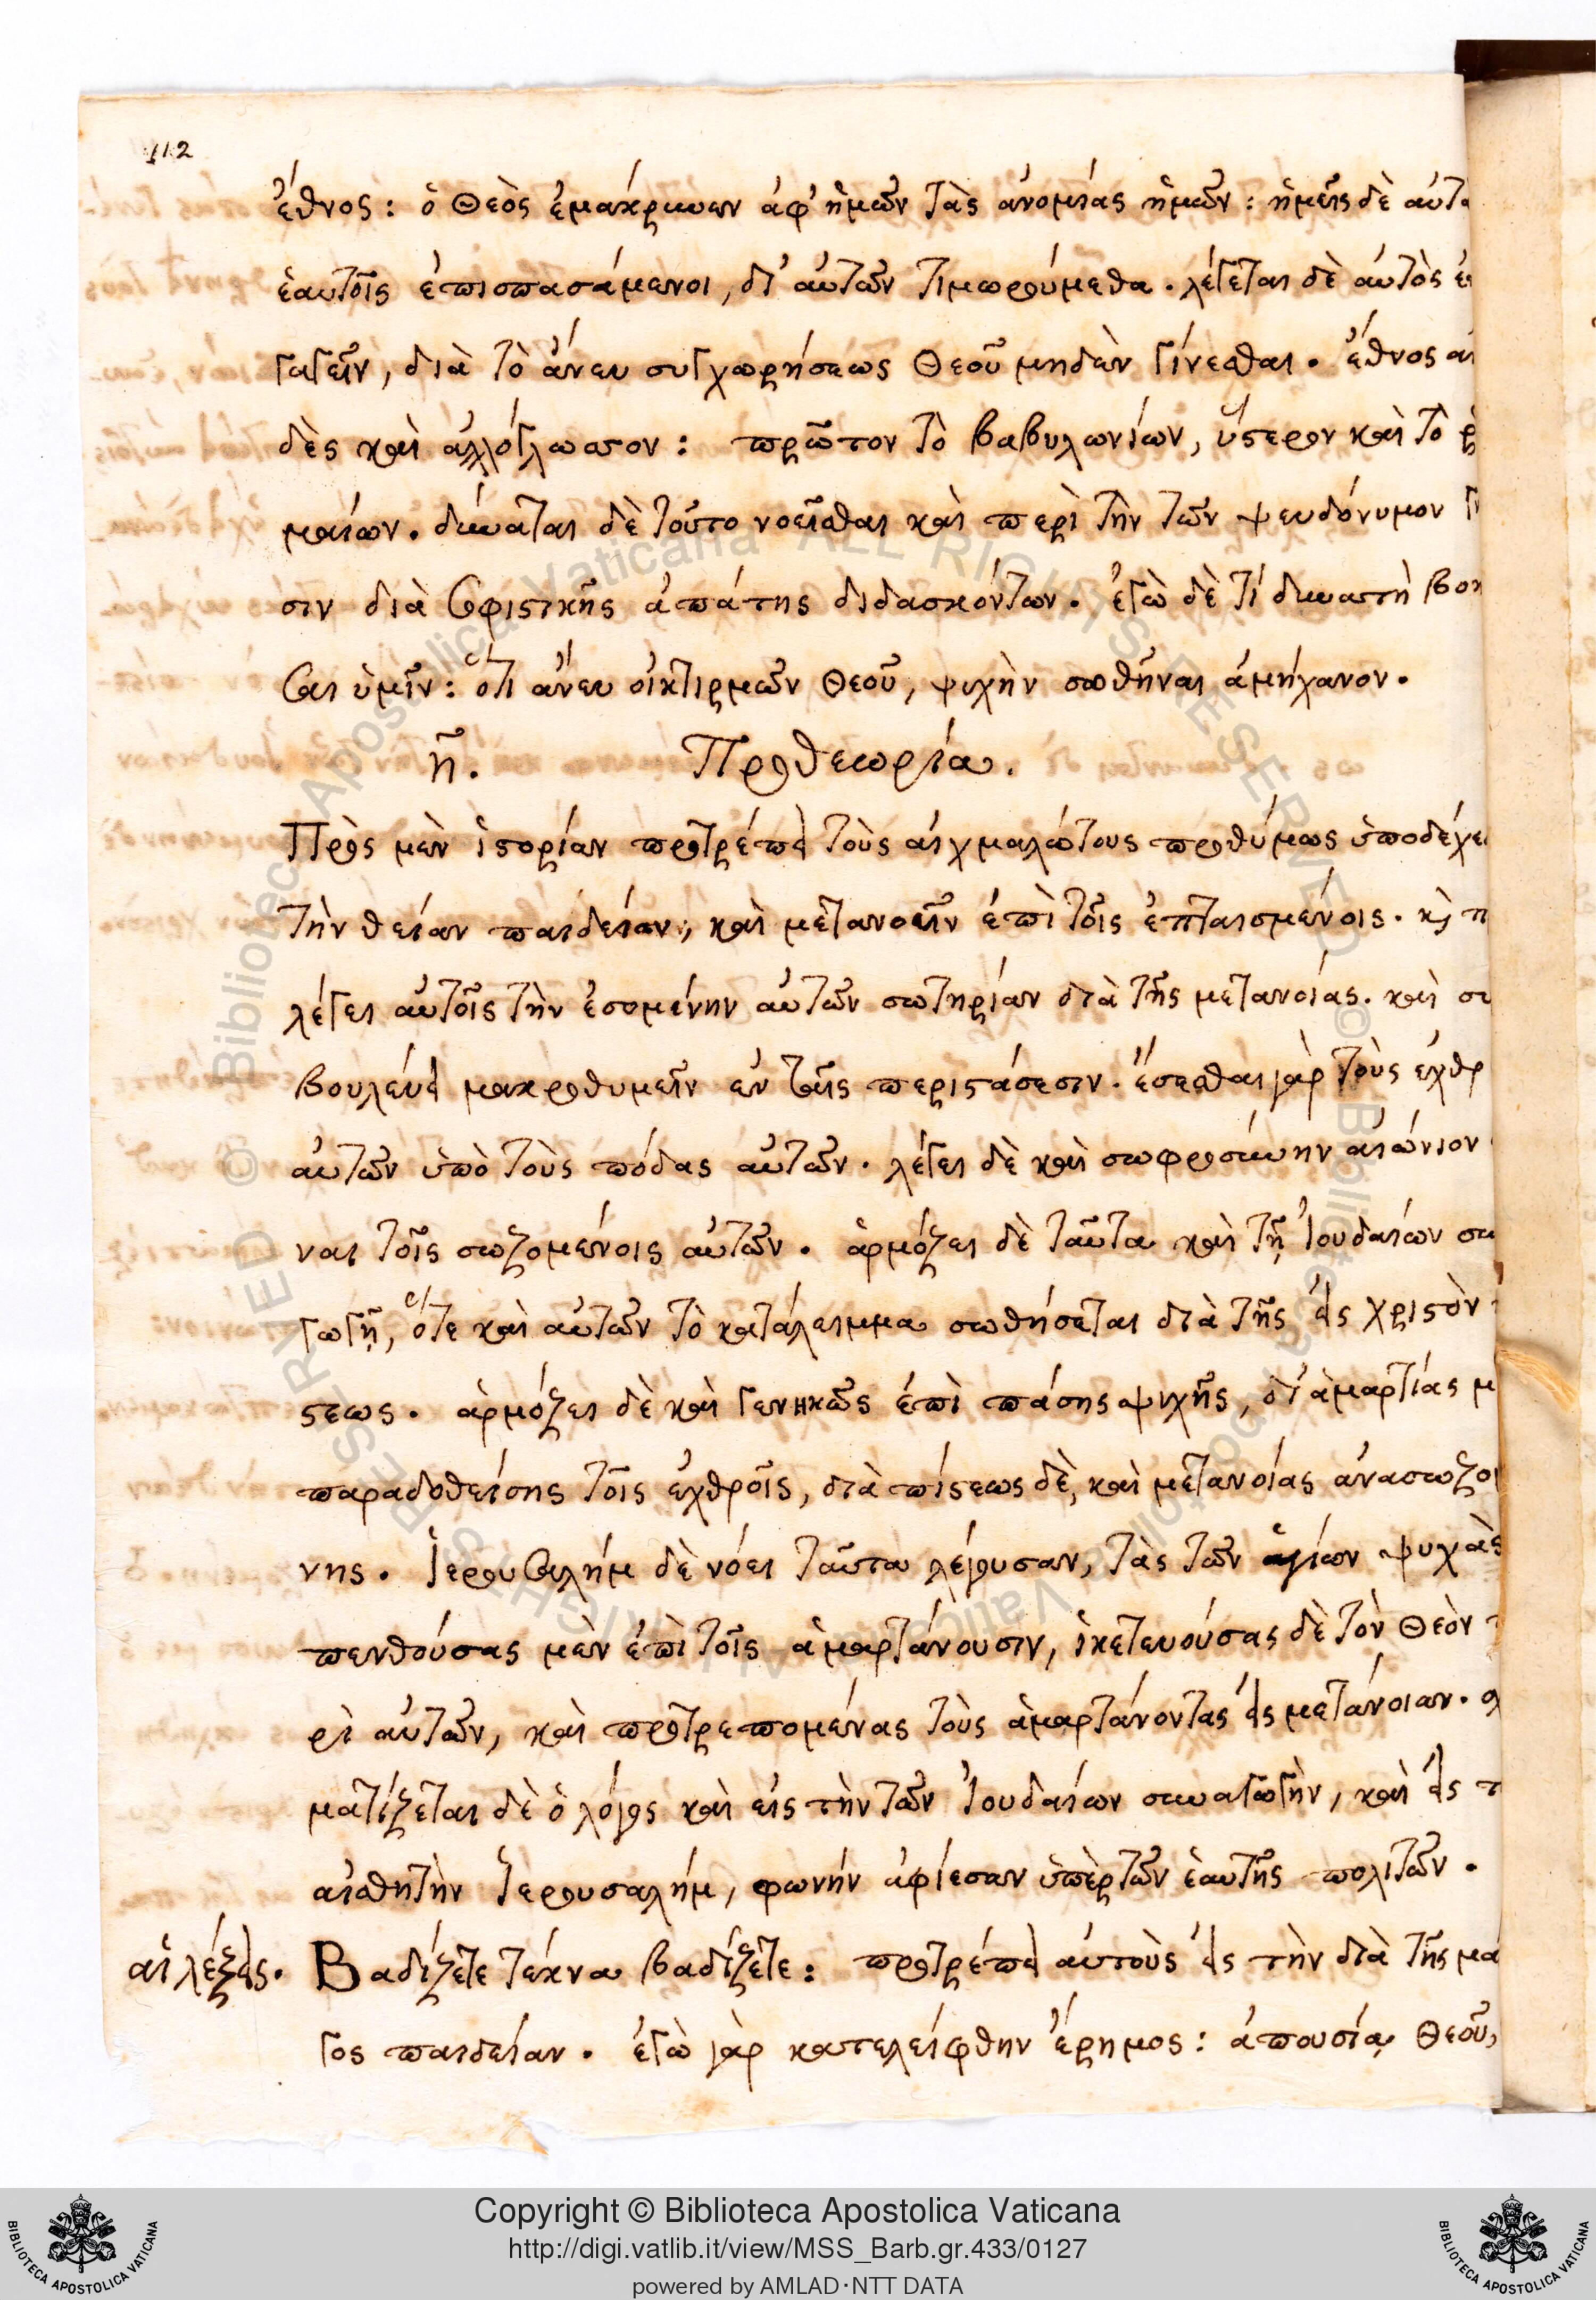 112
ἔθνος: ὁ Θεὸς ἐμάκρυνεν ἀφ' ἡμῶν τὰς ἀνομίας ἡμῶν: ἡμεῖς δὲ αὐτὰ
ἑαυτοῖς ἐπισπασάμενοι, δι' αὐτῶν τιμωρούμεθα. λέγεται δὲ αὐτὸς
γαγεῖν, διὰ τὸ ἄνευ συγχωρήσεως Θεοῦ μηδὲν γίνεσθαι. ἔθνος αι
δὲς καὶ ἀλλόγλωσσον: πρῶτον τὸ βαβυλωνίων, ὕστερον καὶ τὸ ῥ
μαίων. δύναται δὲ τοῦτο νοεῖσθαι καὶ περὶ τὴν τῶν ψευδόνυμον γ
σιν διὰ σοφιστικῆς ἀπάτης διδασκόντων. ἐγὼ δὲ τί δυνατὴ βοη
σαι ὑμῖν: ὅτι ἄνευ οἰκτιρμῶν Θεοῦ, ψυχὴν σωθῆναι ἀμήχανον.
η. Προθεωρία.
Πρὸς μὲν ἱστορίαν προτρέπει τοὺς αἰχμαλώτους προθύμως ὑποδέχε
τὴν θείαν παιδείαν, καὶ μετανοεῖν ἐπὶ τοῖς ἐπταισμένοις. κὶ π
λέγει αὐτοῖς τὴν ἐσομένην αὐτῶν σωτηρίαν διὰ τῆς μετανοίας. καὶ συ
βουλεύει μακροθυμεῖν ἐν ταῖς περιστάσεσιν. ἔσεσθαι γὰρ τοὺς ἐχθρ
αὐτῶν ὑπὸ τοὺς πόδας αὐτῶν. λέγει δὲ καὶ σωφροσύνην αἰώνιον
ναι τοῖς σωζομένοις αὐτῶν. ἁρμόζει δὲ ταῦτα καὶ τῇ Ἰουδαίων συ
γωγῇ, ὅτε καὶ αὐτῶν τὸ κατάλειμμα σωθήσεται διὰ τῆς εἰς χριστὸν
στεως. ἁρμόζει δὲ καὶ γενηκῶς ἐπὶ πάσης ψυχῆς, δι' ἁμαρτίας μ
παραδοθείσης τοῖς ἐχθροῖς, διὰ πίστεως δὲ, καὶ μετανοίας ἀνασωζο
νης. Ἱερουσαλήμ δὲ νόει ταῦτα λέγουσαν, τὰς τῶν ἁγίων ψυχὰς
πενθούσας μὲν ἐπὶ τοῖς ἁμαρτάνουσιν, ἱκετευούσας δὲ τὸν Θεὸν
ρὶ αὐτῶν, καὶ προτρεπομένας τοὺς ἁμαρτάνοντας εἰς μετάνοιαν.
ματίζεται δὲ ὁ λόγος καὶ εἰς τὴν τῶν Ἰουδαίων συναγωγὴν, καὶ εἰς τ
αἰσθητὴν Ἱερουσαλήμ, φωνήν ἀφίεσαν ὑπὲρ τῶν ἑαυτῆς πολιτῶν.
αἱ λέξεις. Βαδίζετε τέκνα βαδίζετε: προτρέπει αὐτοὺς εἰς τὴν διὰ τῆς μά
γος παιδείαν. ἐγὼ γὰρ κατελείφθην ἔρημος: ἀπουσίᾳ Θεοῦ,
Copyright © Biblioteca Apostolica Vaticana
http://digi.vatlib.it/view/MSS_Barb.gr.433/0127
powered by AMLAD·NTT DATA